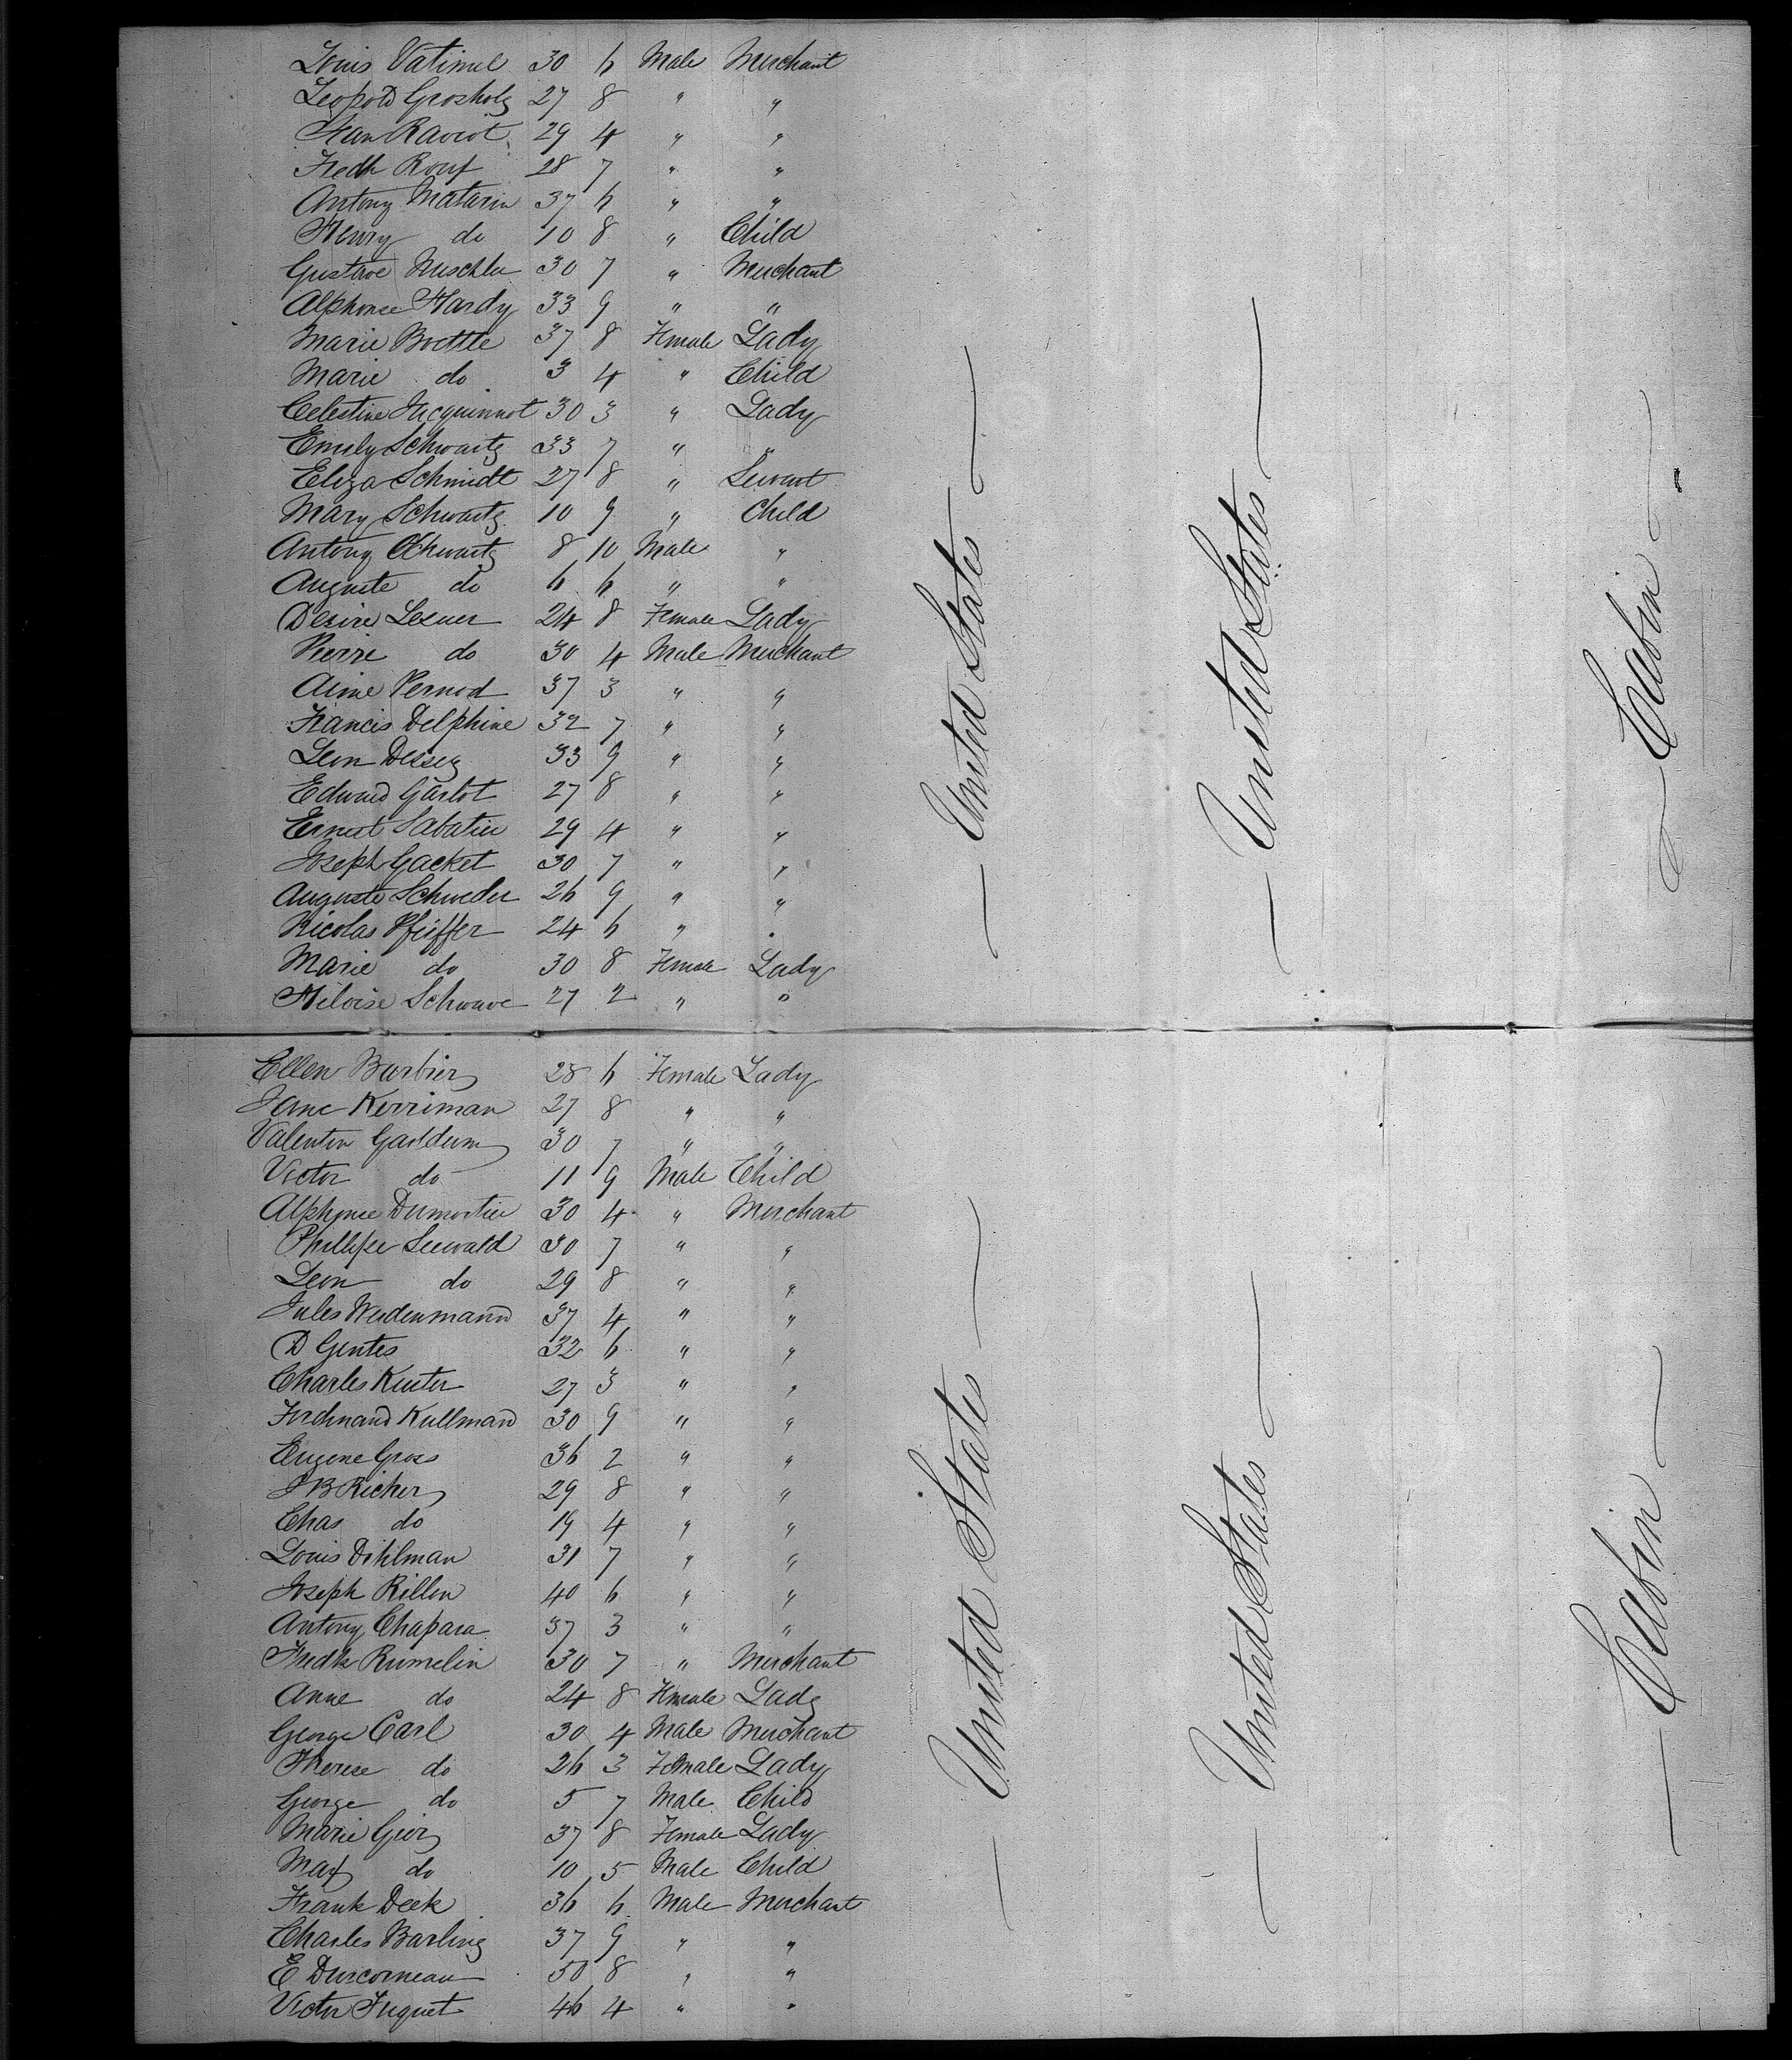 Louis Vatimel 30 6 Male Merchant
Leopold Grosholz 27 8 " "
Jean Raviot 29 4 " "
Fredk Rouf 28 7 " "
Antony Matarin 37 6 " "
Henry do 10 8 " Child
Gustave Nuschler 30 7 " Merchant
Alphonse Hardy 33 9 " "
Marie Boettle 37 8 Female Lady
Marie do 3 4 " Child
Celestine Jacquinnot 30 3 " Lady
Emely Schwartz 33 7 " "
Eliza Schmidt 27 8 " Servant
Mary Schwartz 10 9 " Child
Antony Schwartz 8 10 Male "
Auguste do 6 6 " "
Desire Lesuer 24 8 Female Lady
Pierre do 30 4 Male Merchant
Aime Pernod 37 3 " "
Francis Delphine 32 7 " "
Leon Dessez 33 9 " "
Edward Garlot 27 8 " "
Ernest Sabatier 29 4 " "
Joseph Gacket 30 7 " "
Auguste Schweder 26 9 " "
Nicolas Pfeiffer 24 6 " "
Marie do 30 8 Female Lady
Heloise Schwave 27 2 " "
— United States —
— United States —
— Cabin —
Ellen Burbier 28 6 Female Lady
Jane Kerriman 27 8 " "
Valentin 30 7 " "
Victor do 11 9 Male Child
Alphonse Dumortier 30 4 " Merchant
Phillipe Leewald 30 7 " "
Leon do 29 8 " "
Jules Weidenmann 37 4 " "
D Gentes 32 6 " "
Charles Kuster 27 3 " "
Ferdinand Kullmann 30 9 " "
Eugene Gross 36 2 " "
J B Richer 29 8 " "
Chas do 19 4 " "
Louis Dihlman 31 7 " "
Joseph Rillon 40 6 " "
Antony Chapara 37 3 " "
Fredk Rumelin 30 7 " Merchant
Anne do 24 8 Female Lady
George Carl 30 4 Male Merchant
Therese do 26 3 Female Lady
George do 5 7 Male Child
Marie Gier 37 8 Female Lady
Max do 10 5 Male Child
Frank Deek 36 6 Male Merchant
Charles Barling 37 9 " "
E Durcorneau 50 8 " "
Victor Fuguet 46 4 " "
— United States —
— United States —
— Cabin —